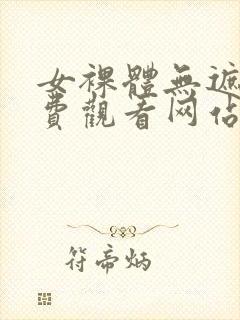 女裸體無遮
費觀看网佔
符帝炳